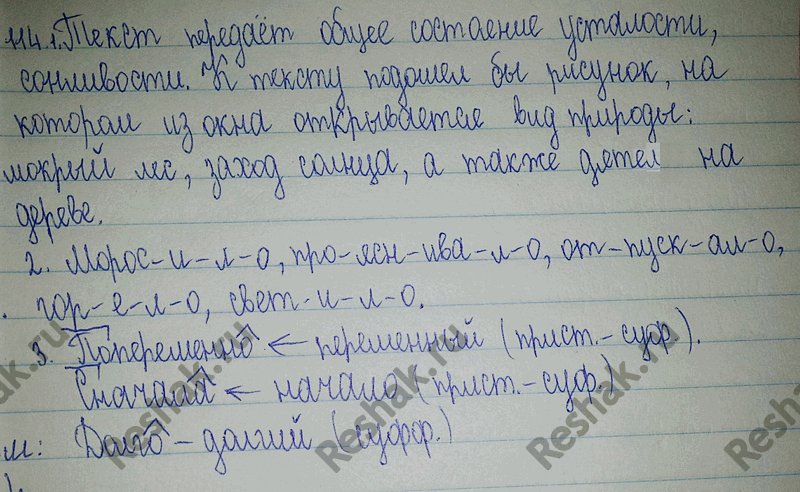 114.1. Текст передаёт общее состаение усталости,
сонливости. К тексту подошел бы рисунок, на
котором из окна открывается вид природы:
мокрый лес, заход солнца, а также дятел на
дереве.
2. Морос-и-л-о, про-ясн-ива-л-о, от-пуск-ал-о,
гор-е-л-о, свет-и-л-о.
3. Попеременно ← переменный (прист.-суф.).
Сначала ← начало (прист.-суф.)
м: Долго - долгий (суфф.)
Reshak.ru
Reshak.ru
Reshak.ru
Reshak.ru